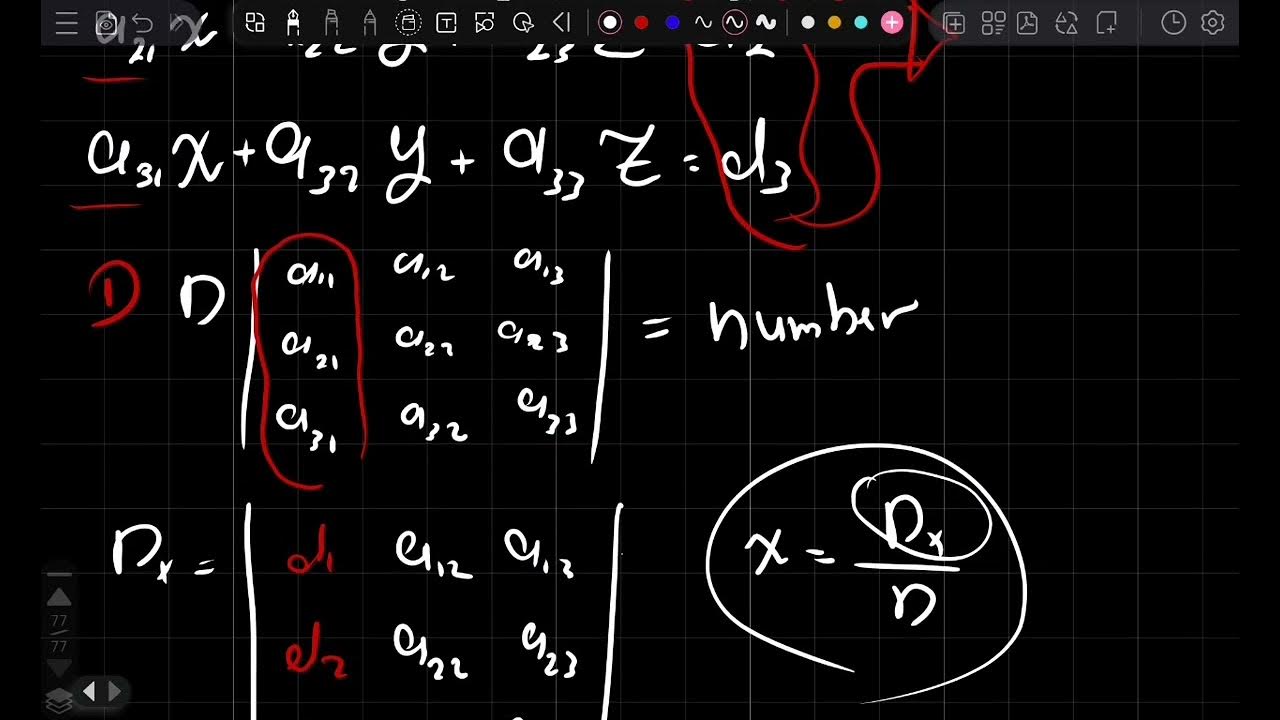 a₂₁x a₂₂y + a₂₃z d₂
a₃₁x + a₃₂y + a₃₃z = d₃
① D | a₁₁ a₁₂ a₁₃ |
| a₂₁ a₂₂ a₂₃ | = number
| a₃₁ a₃₂ a₃₃ |
Dₓ = | d₁ a₁₂ a₁₃ |
| d₂ a₂₂ a₂₃ |
x = Dₓ / D
77
77